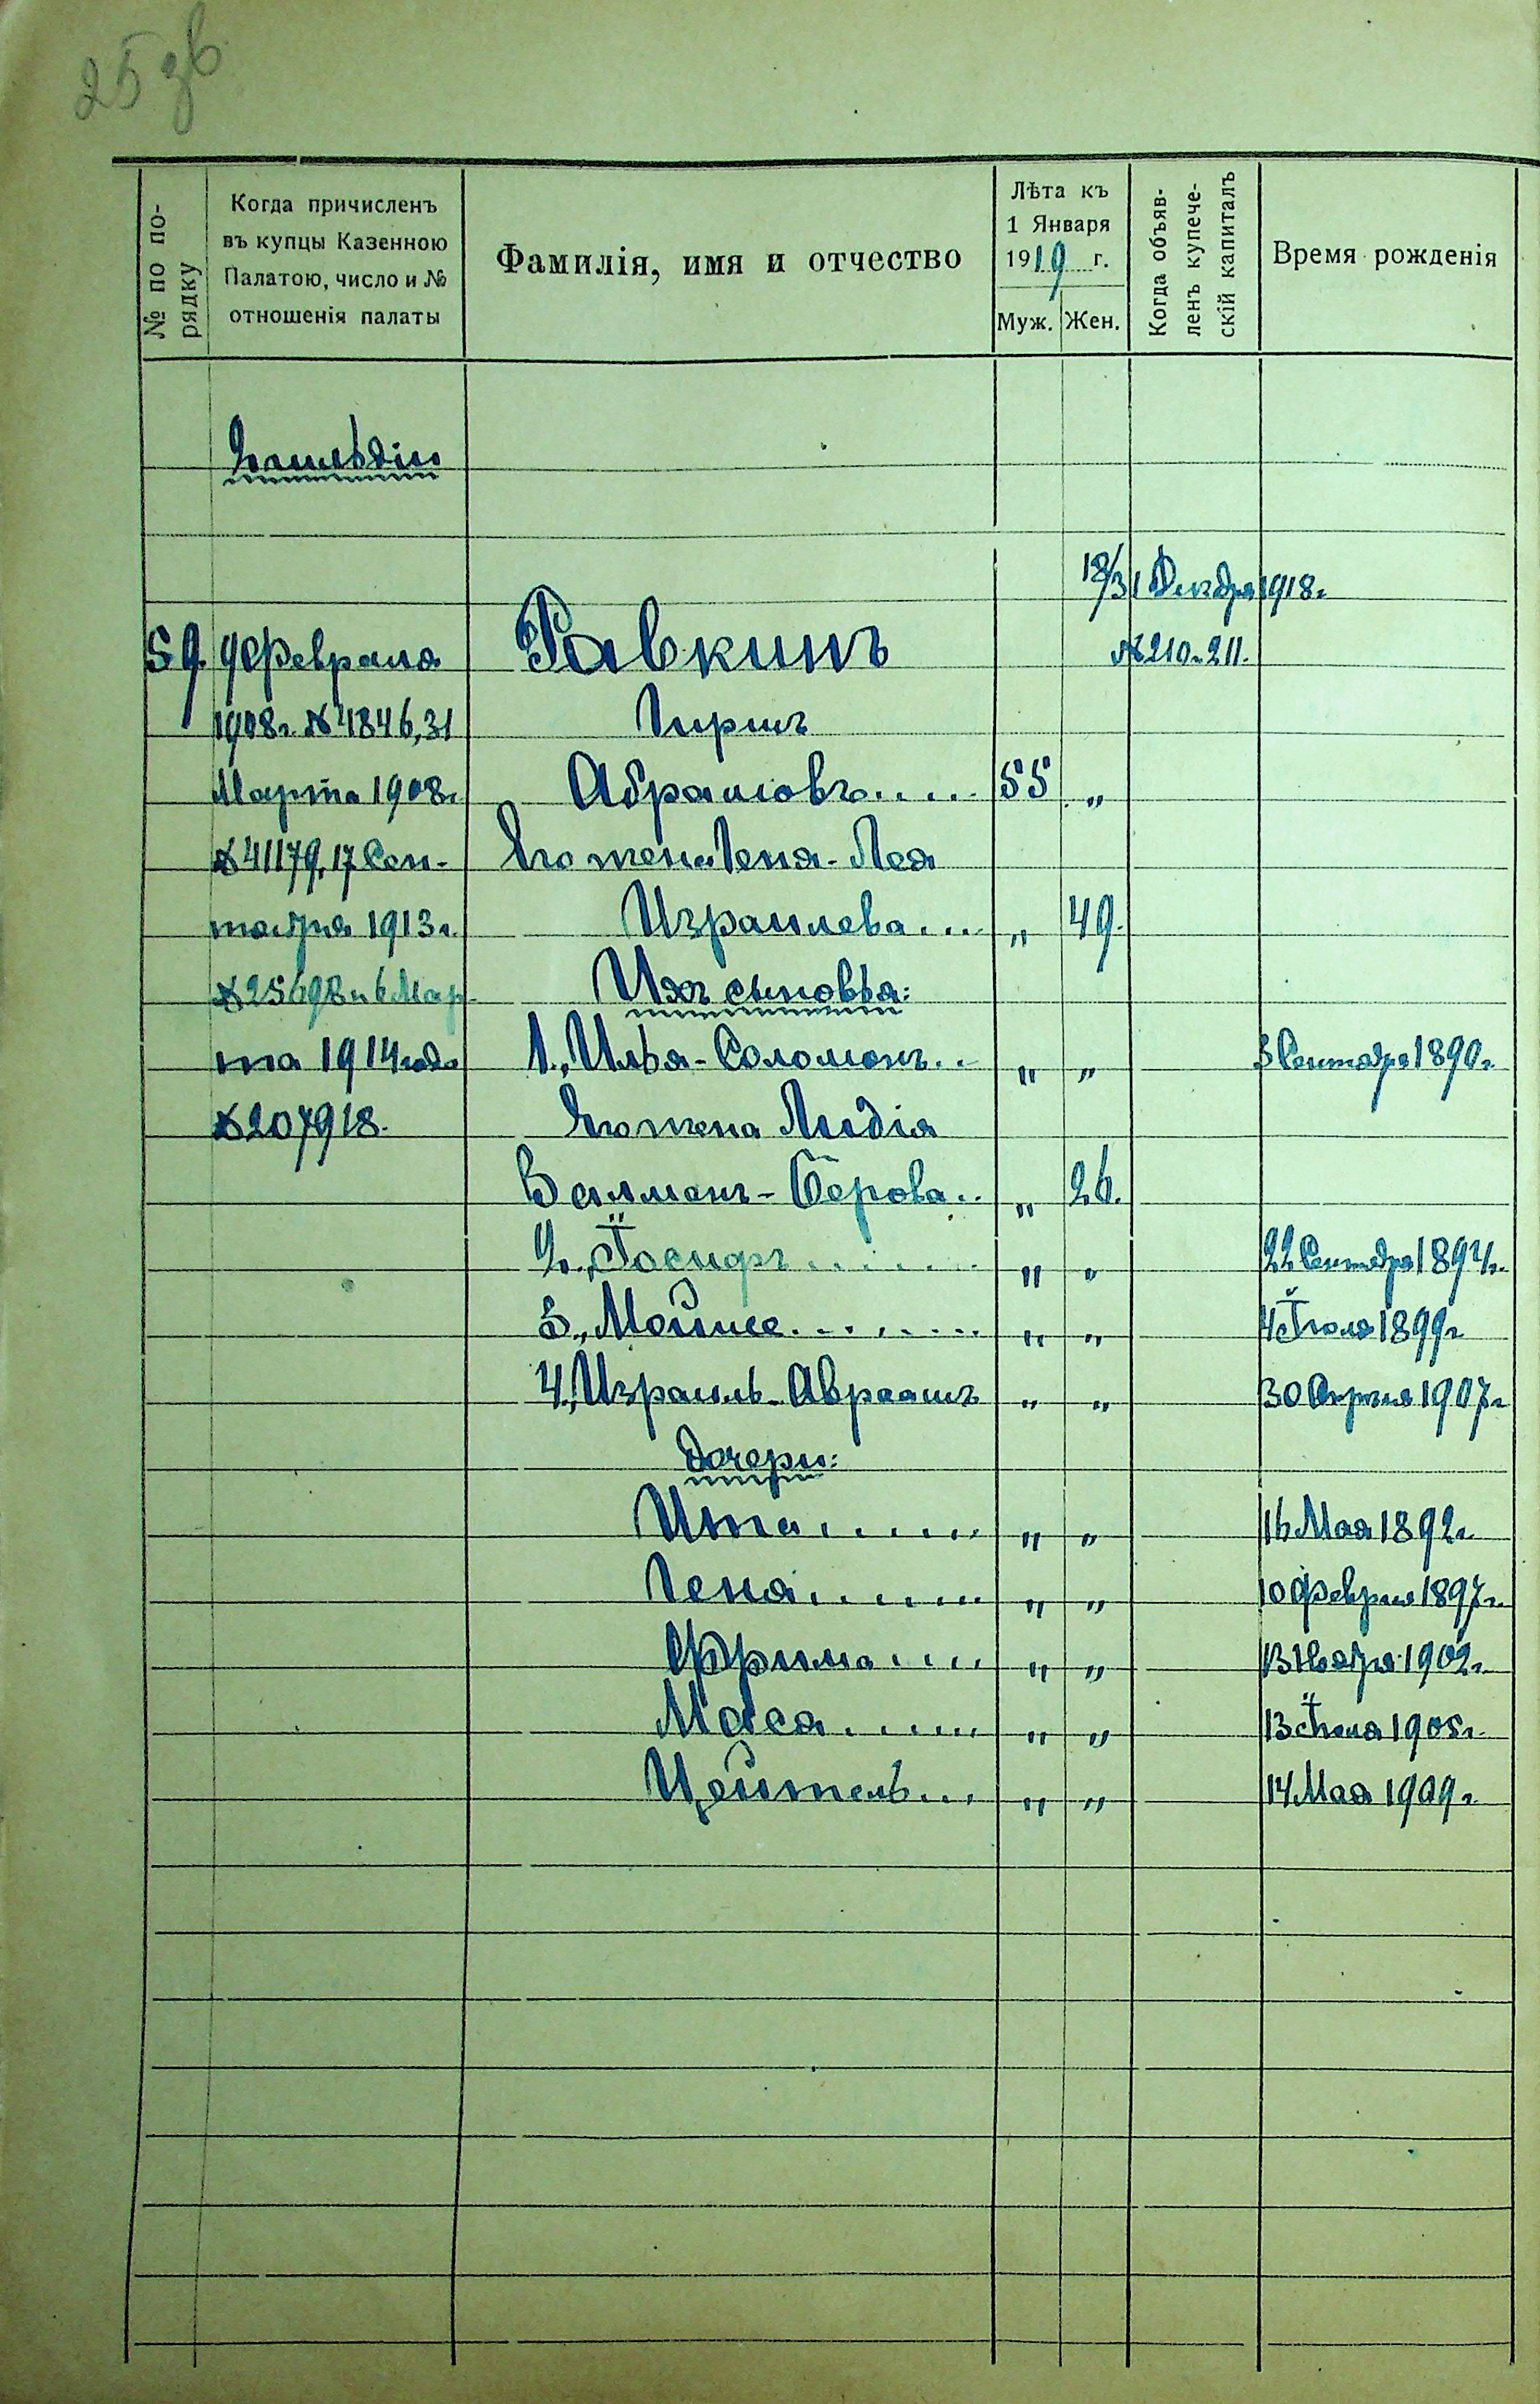 25 зв
№ по по-
рядку
Когда причисленъ
въ купцы Казенною
Палатою, число и №
отношенія палаты
Фамилія, имя и отчество
Лѣта къ
1 Января
1919 г.
Муж. Жен.
Когда объяв-
ленъ купече-
скій капиталъ
Время рожденія
2 гильдіи
18/31 Декабря 1918 г.
59. 9 Февраля Равкинъ № 210 и 211.
1908 г. № 4846, 31 Гиршъ
Марта 1908 г. Абрамовъ..... 55 "
№ 41179, 17 Сен- Его жена Геня-Лея
тября 1913 г. Израилева... " 49.
№ 25698 и 6 Мар- Ихъ сыновья:
та 1914 года 1., Илья-Соломонъ.. " " 3 Сентября 1890 г.
№ 207918. Его жена Лидія
Залманъ-Берова.. " 26.
2., Іосифъ....... " " 22 Сентября 1894 г.
3., Мойше........ " " 4 Іюля 1899 г.
4., Израиль-Авраамъ " " 30 Апрѣля 1907 г.
Дочери:
Ита...... " " 16 Мая 1892 г.
Геня....... " " 10 Февраля 1897 г.
Фрума.... " " 13 Ноября 1902 г.
Мася...... " " 13 Іюля 1905 г.
Цейтель... " " 14 Мая 1909 г.